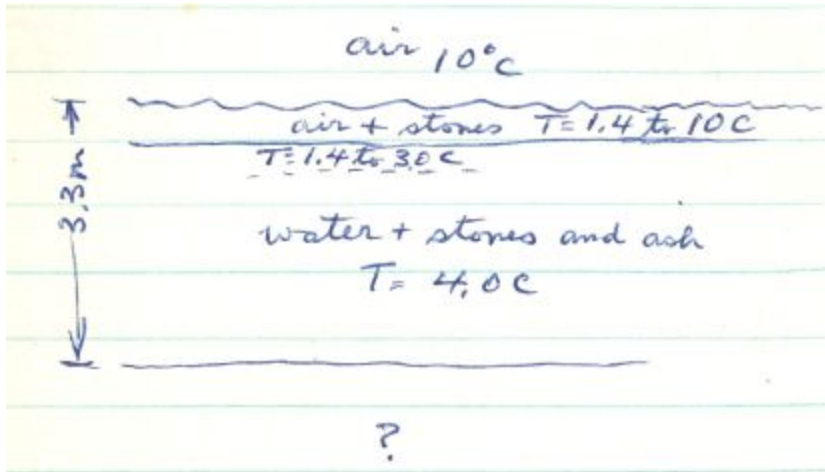 air 10°C
air + stones T= 1.4 to 10 C
T= 1.4 to 3.0 C
3.3m
water + stones and ash
T= 4.0 C
?